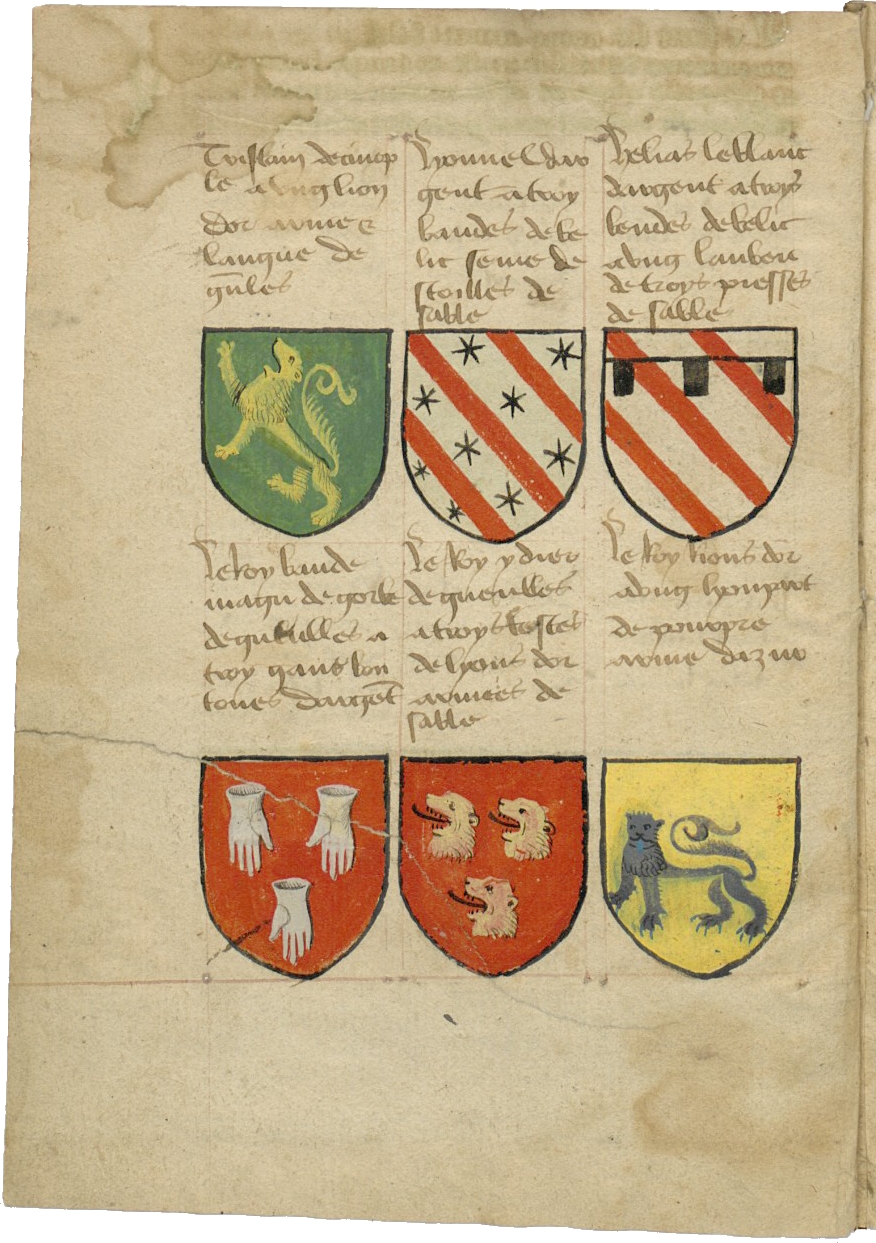 Tristain de cinop
le a vng lion
dor arme &
langue de
gu̅les
Lyonnel dar
gent a troy
bandes de be
lic seme de
stoilles de
sable
Helias le blanc
dargent a troys
bendes de belic
a vng lanbeu
de troys piesses
de sable
Le Roy bande
magu de gorre
de gueulles a
troy gans bou
tones dargēt
Le Roy ydier
de gueulles
a troys testes
de lyons dor
armees de
sable
Le Roy Rions dor
a vng lyonpart
de pourpre
arme dazur